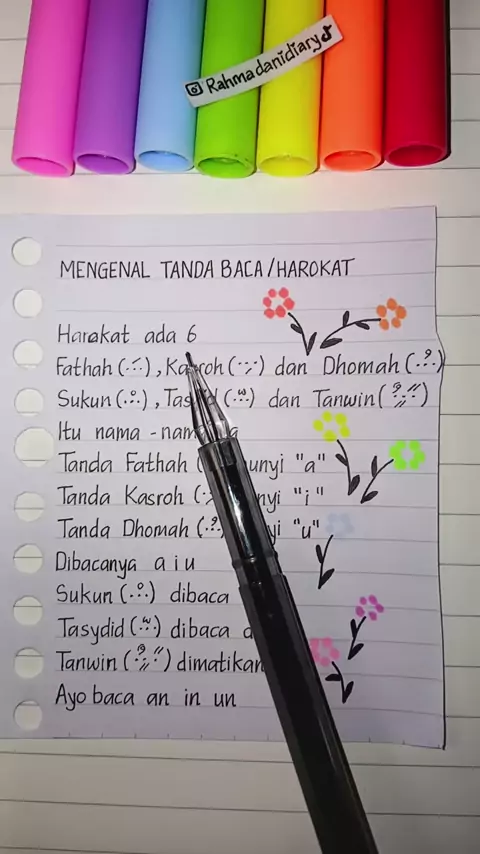 Rahmadanidiary
MENGENAL TANDA BACA/HAROKAT
Harakat ada 6
Fathah (∴), Kasroh (∵) dan Dhomah (ُ)
Sukun (ْ), Tasjid (ّ) dan Tanwin (ًٌٍ)
Itu nama-nam
Tanda Fathah ( unyi "a"
Tanda Kasroh ( nyi "i"
Tanda Dhomah ( yi "u"
Dibacanya a i u
Sukun (ْ) dibaca
Tasydid (ّ) dibaca d
Tanwin (ًٌٍ) dimatikan
Ayo baca an in un